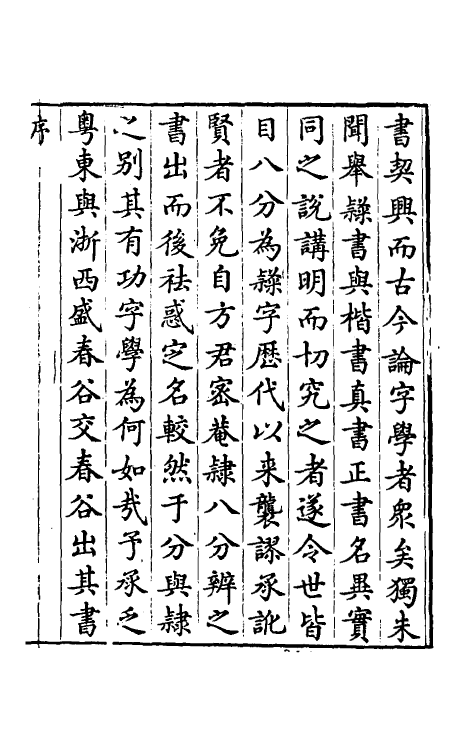 書契興而古今論字學者衆矣獨未
聞舉隸書與楷書真書正書名異實
同之說講明而切究之者遂令世皆
目八分為隸字歷代以来襲謬承訛
賢者不免自方君密菴隸八分辨之
書出而後祛惑定名較然于分與隸
之别其有功字學為何如㢤予承乏
粵東與浙西盛春谷交春谷出其書
序